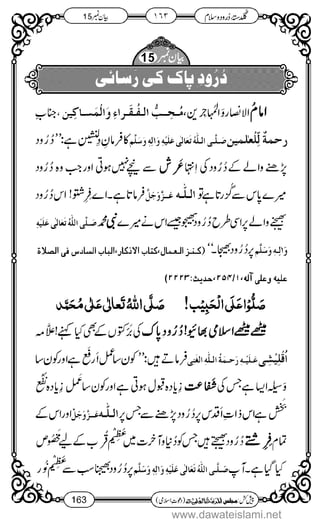 بیان نمبر 15 ١٦٣ گلدستۂ درود و سلام
بیان نمبر 15
دُرُودِ پاک کی رسائی
امامُ الانصار والمہاجرین، مُحِبُّ الْفُقَرَاءِ وَالْمَسَاكِين، جنابِ
رحمةٌ لِّلْعٰلمین صَلَّی اللهُ تَعَالٰی عَلَیْهِ وَاٰلِهٖ وَسَلَّم کا فرمانِ دلنشین ہے: ’’دُرُود
پڑھنے والے کے دُرُود کی انتہا عرش سے نیچے نہیں ہوتی اور جب وہ دُرُود
میرے پاس سے گزرتا ہے تو اللہ عَزَّوَجَلَّ فرماتا ہے۔ اے فرشتو! اس دُرُود
بھیجنے والے پر اسی طرح دُرُود بھیجو جیسے اس نے میرے نبی محمد صَلَّی اللهُ تَعَالٰی عَلَیْهِ
وَاٰلِهٖ وَسَلَّم پر دُرُود بھیجا۔‘‘ (کنز العمال، کتاب الاذکار، الباب السادس فی الصلاة
علیه وعلی آله، ۲۵۴/۱، حدیث: ۲۲۲۳)
صَلُّوْا عَلَی الْحَبِیْبِ! صَلَّی اللهُ تَعَالٰی عَلٰی مُحَمَّد
میٹھے میٹھے اسلامی بھائیو! دُرُودِ پاک کی بَرَکتوں کے بھی کیا کہنے! علّامہ
اُقْلِیْشِی عَلَیْهِ رَحْمَةُ اللهِ الْغَنِی فرماتے ہیں: ’’کون سا عمل اَرْفَع ہے اور کون سا
وسیلہ ایسا ہے جس کی شفاعت زیادہ قبول ہوتی ہے اور کون سا عمل زیادہ نفع
بخش ہے اس ذاتِ اقدس پر دُرُود پڑھنے سے جس پر اللہ عَزَّوَجَلَّ اور اس کے
تمام فرشتے دُرُود بھیجتے ہیں جس کو دنیا و آخرت میں عظیم قرب کے لیے مخصوص
کیا گیا ہے۔ آپ صَلَّی اللهُ تَعَالٰی عَلَیْهِ وَاٰلِهٖ وَسَلَّم پر دُرُود بھیجنا سب سے عظیم نور
163 پیش کش: مجلس المدینة العلمیة (دعوتِ اسلامی)
www.dawateislami.net